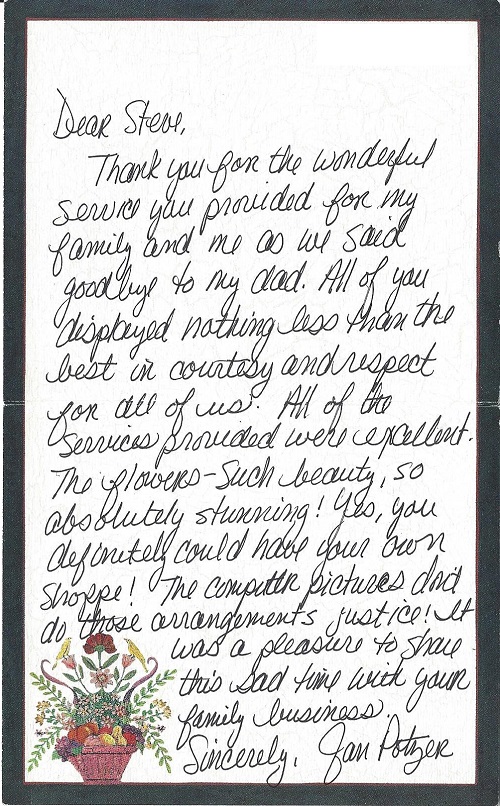 Dear Steve,
Thank you for the wonderful
service you provided for my
family and me as we said
goodbye to my dad. All of you
displayed nothing less than the
best in courtesy and respect
for all of us. All of the
services provided were excellent.
The flowers-such beauty, so
absolutely stunning! Yes, you
definitely could have your own
shoppe! The computer pictures don't
do those arrangements justice! It
was a pleasure to share
this sad time with your
family business.
Sincerely, Jan Potzer